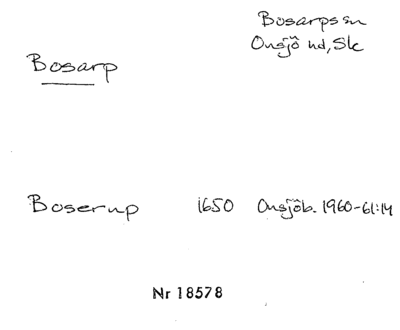 Bosarps sn
Onsjö hd, Sk
Bosarp
Boserup 1650 Onsjöb. 1960-61:14
Nr 18578